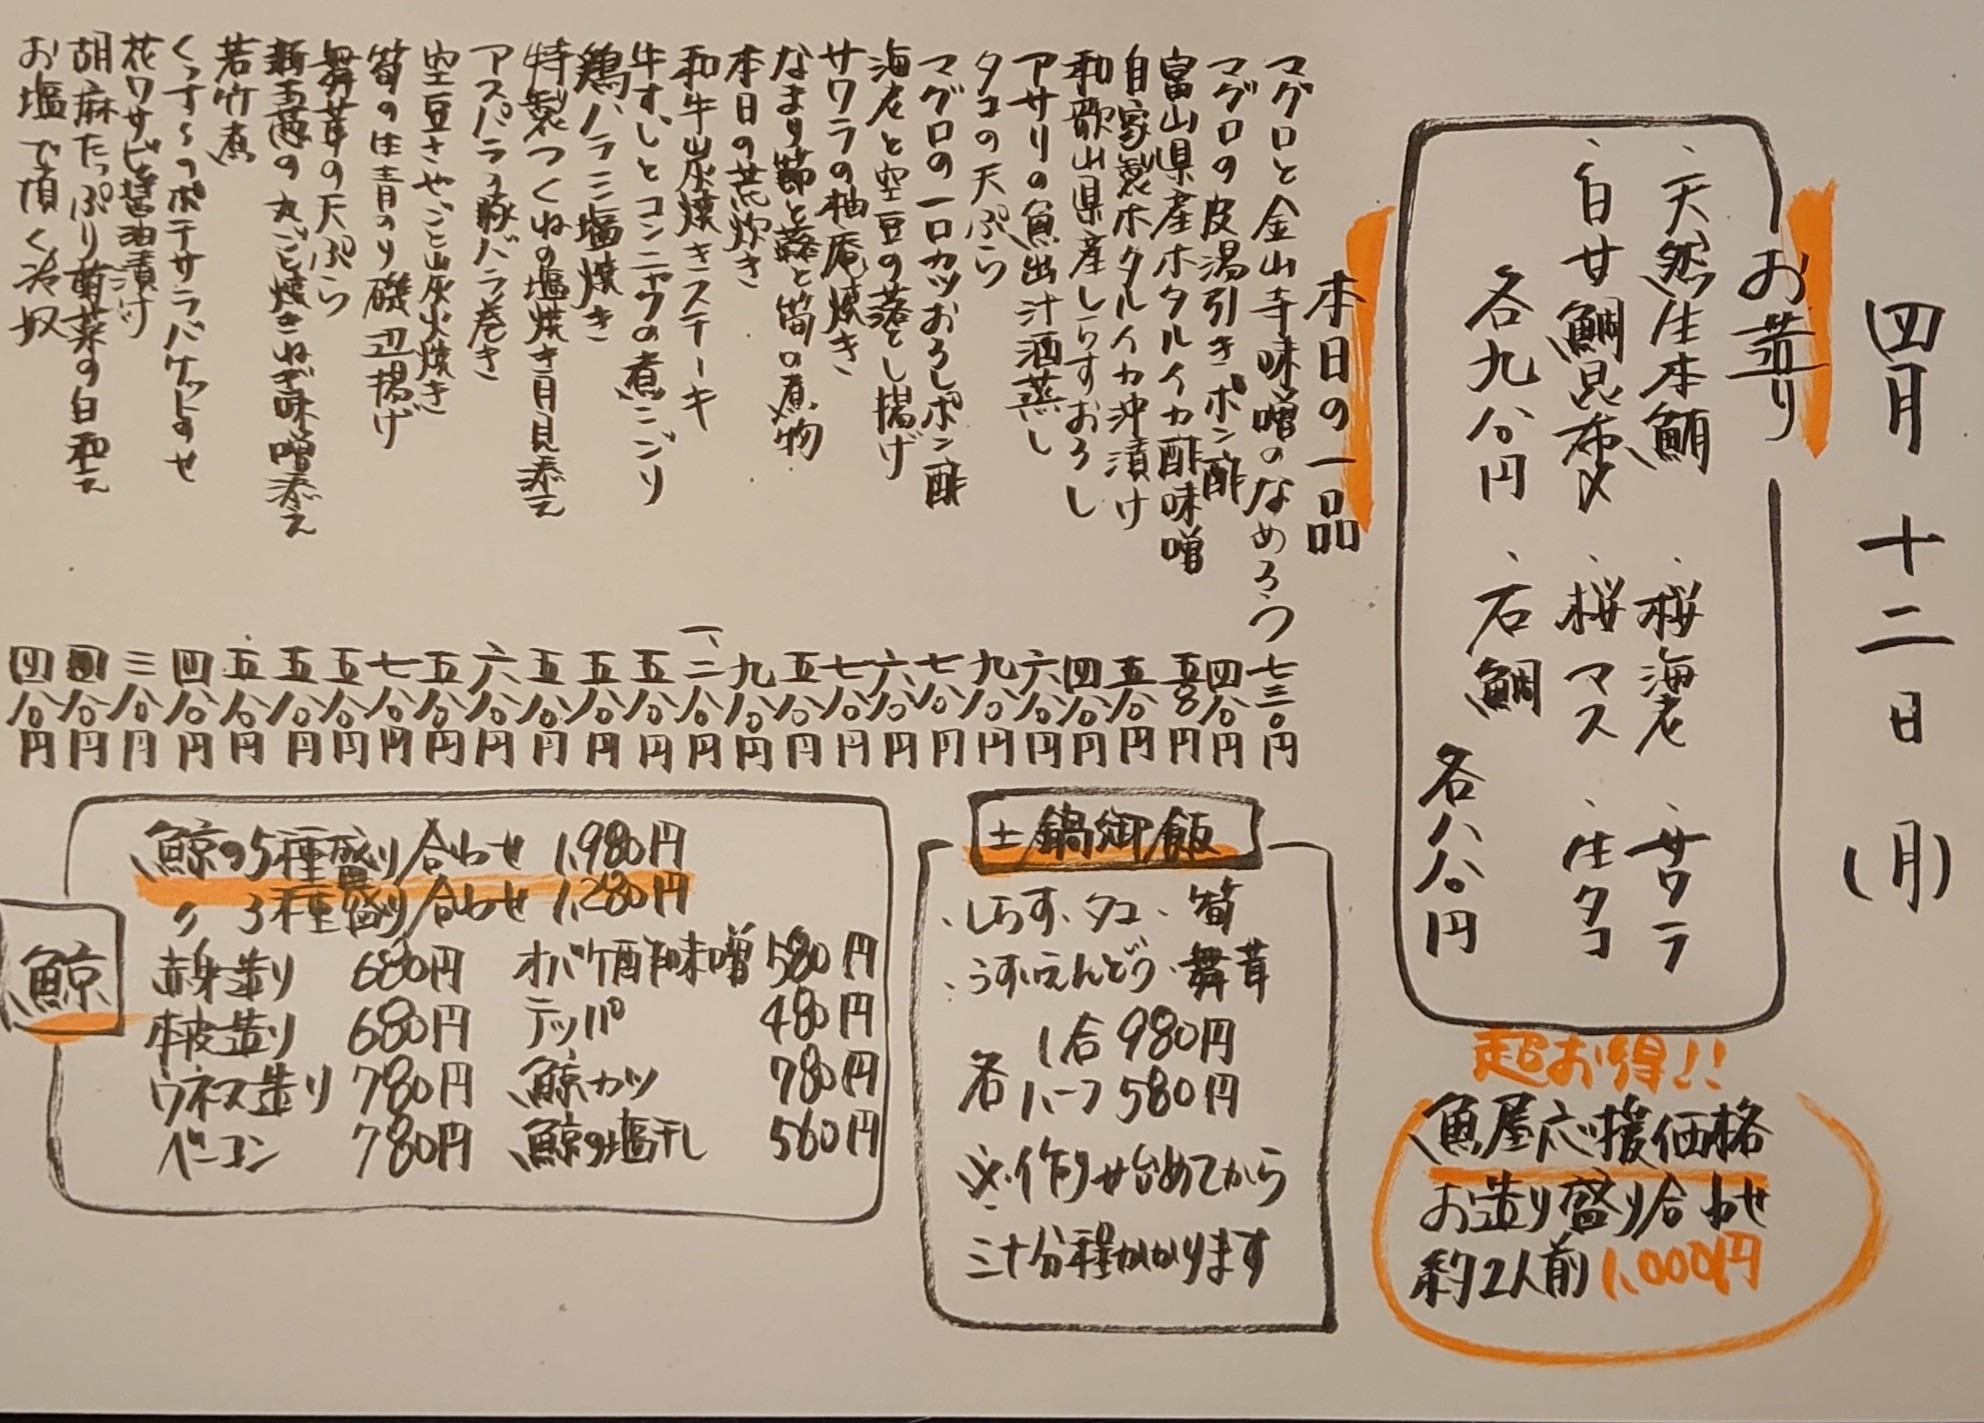 四月十二日(月)
お造り
・天然生本鮪 ・桜海老 ・サワラ
・白甘鯛昆布〆 ・桜マス ・生タコ
各九八〇円 ・石鯛 各八八〇円
超お得!!
魚屋応援価格
お造り盛り合わせ
約2人前 1,000円
本日の一品
マグロと金山寺味噌のなめろう 七三〇円
マグロの皮湯引きポン酢 四八〇円
富山県産ホタルイカ酢味噌 五八〇円
自家製ホタルイカ沖漬け 五八〇円
和歌山県産しらすおろし 四八〇円
アサリの魚出汁酒蒸し 六八〇円
タコの天ぷら 九八〇円
マグロの一口カツおろしポン酢 七八〇円
海老と空豆の落とし揚げ 六八〇円
サワラの柚庵焼き 七八〇円
なまり節と蕗と筍の煮物 五八〇円
本日の荒炊き 九八〇円
和牛炭焼きステーキ 一、二八〇円
牛すじとコンニャクの煮こごり 五八〇円
鶏ハラミ塩焼き 五八〇円
特製つくねの塩焼き月見添え 五八〇円
アスパラの豚バラ巻き 六八〇円
空豆さやごと炭火焼き 五八〇円
筍の生青のり磯辺揚げ 七八〇円
舞茸の天ぷら 五八〇円
新玉葱の丸ごと焼きねぎ味噌添え 五八〇円
若竹煮 五八〇円
くっすらのポテサラバケットのせ 四八〇円
花ワサビ醤油漬け 三八〇円
胡麻たっぷり菊菜の白和え 四八〇円
お塩で頂く冷奴 四八〇円
土鍋御飯
・しらす・タコ・筍
・うすいえんどう・舞茸
各 1合 980円
ハーフ 580円
※作り始めてから
三十分程かかります
鯨
鯨の5種盛り合わせ 1,980円
〃 3種盛り合わせ 1,280円
赤身造り 680円 オバケ酢味噌 580円
本皮造り 680円 テッパ 480円
ウネス造り 780円 鯨カツ 780円
ベーコン 780円 鯨の塩干し 560円